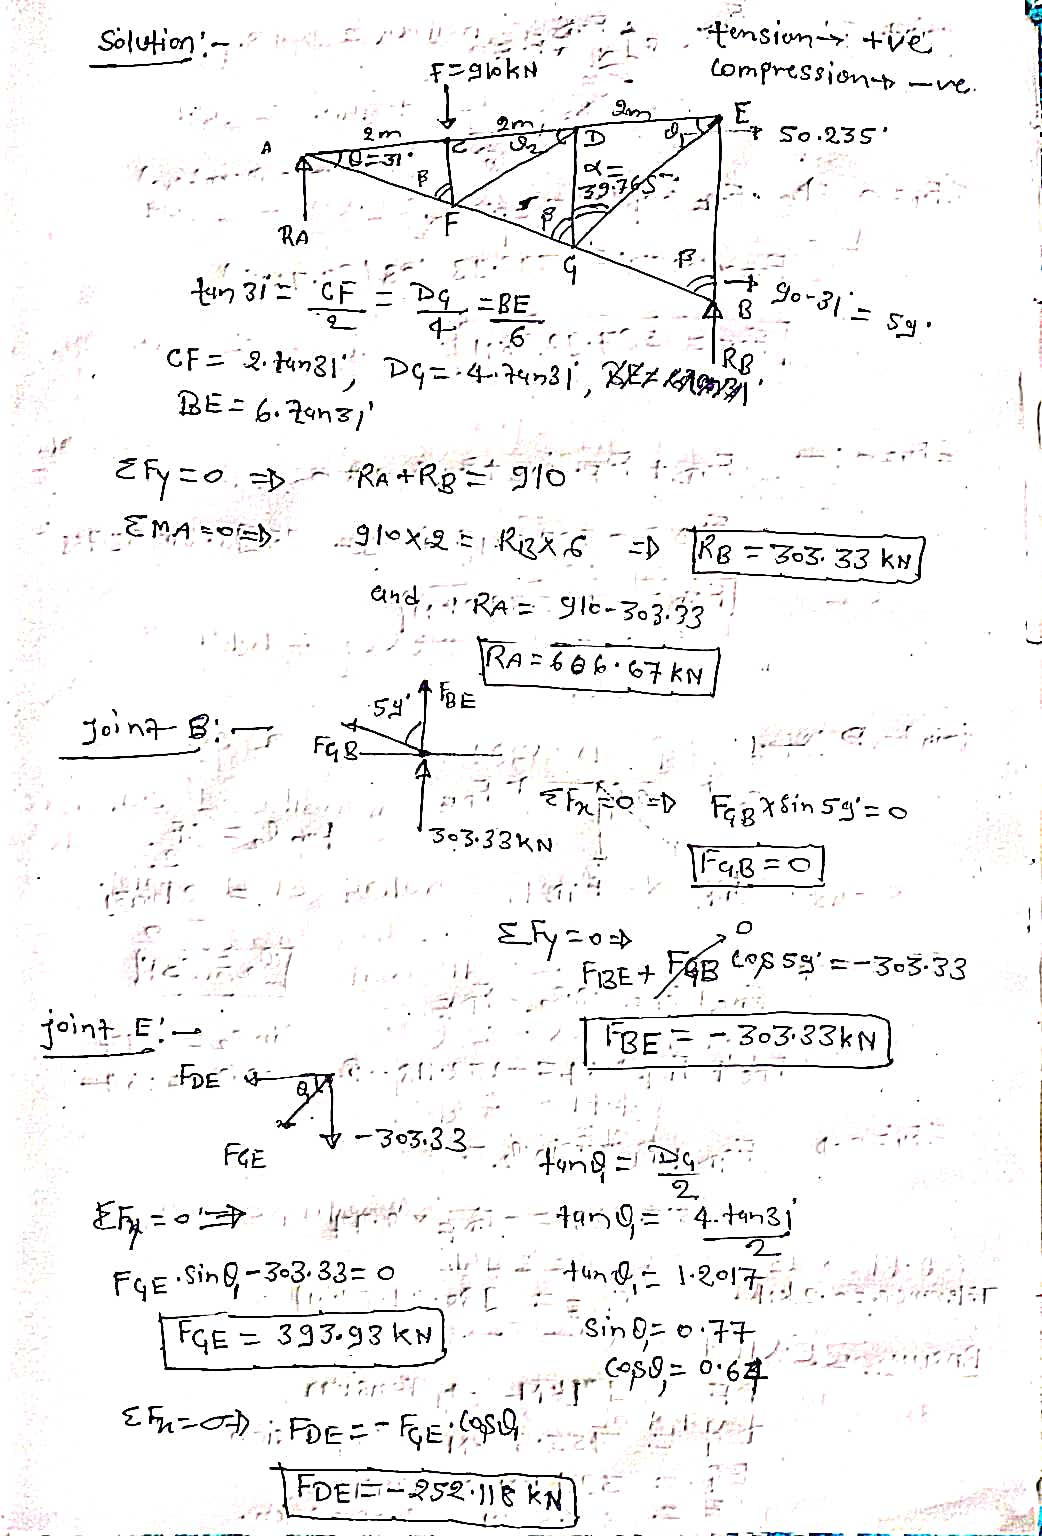 Solution:-
tension → +ve
compression → -ve.
F=910kN
2m 2m 2m E
A θ=31° C θ2 D θ1 → 50.235°
β α=
39.765°
RA F β G β
B → 90-31° = 59°
RB
tan 31° = CF/2 = DG/4 = BE/6
CF = 2.tan31°, DG = 4.tan31°,
BE = 6.tan31°
ΣFy=0 ⇒ RA+RB = 910
ΣMA=0 ⇒ 910×2 = RB×6 ⇒ RB = 303.33 kN
and, RA = 910-303.33
RA = 606.67 KN
Joint B:-
59° FBE
FGB
303.33KN
ΣFx=0 ⇒ FGB × Sin 59° = 0
FGB = 0
ΣFy=0 ⇒ 0
FBE + FGB cos 59° = -303.33
FBE = -303.33kN
joint E:-
FDE θ1
FGE -303.33
tanθ1 = DG/2
ΣFy = 0 ⇒ tanθ1 = 4.tan31°/2
FGE.Sinθ1 - 303.33 = 0 tanθ1 = 1.2017
FGE = 393.93 KN Sinθ1 = 0.77
cosθ1 = 0.64
ΣFx=0 ⇒ FDE = - FGE.cosθ1
FDE = -252.118 KN